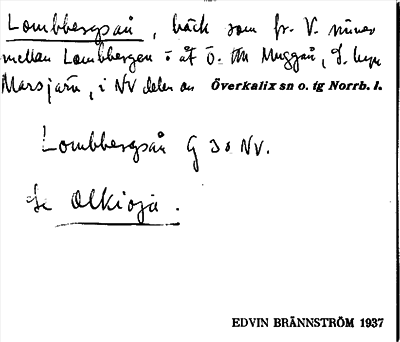 Lombbergsån, bäck som fr. V. rinner
mellan Lombbergen o åt Ö. till Muggån, S. 
Marsjärv, i NV delen av Överkalix sn o. tg Norrb. l.
Lombbergsån G 30 NV.
Se Olkioja.
EDVIN BRÄNNSTRÖM 1937